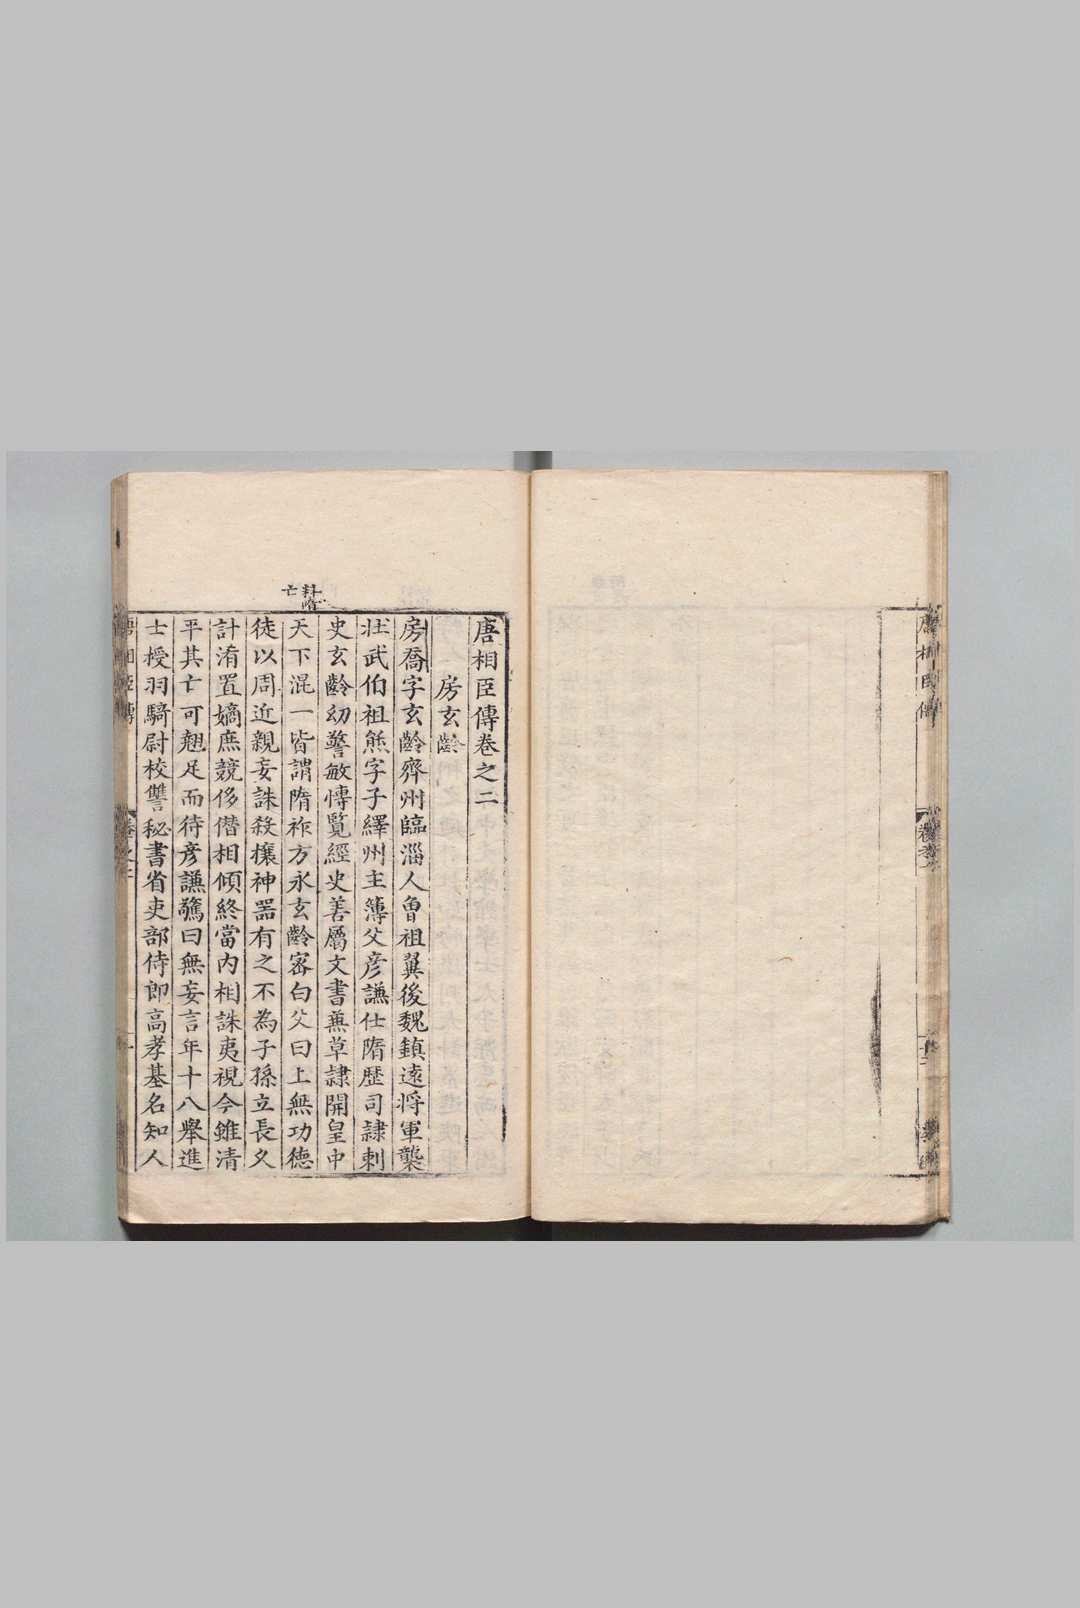 唐相臣傳卷之二
房玄齡
房喬字玄齡齊州臨淄人曾祖翼後魏鎮遠將軍襲
壯武伯祖熊字子繹州主簿父彦謙仕隋歷司隷刺
史玄齡幼警敏慱覽經史善屬文書兼草隷開皇中
天下混一皆謂隋祚方永玄齡密白父曰上無功德
徒以周近親妄誅殺攘神器有之不為子孫立長久
計淆置嫡庶競侈僣相傾終當内相誅夷視今雖清
平其亡可翹足而待彦謙驚曰無妄言年十八舉進
士授羽騎尉校讐秘書省吏部侍郎高孝基名知人
料隋
亡
唐相臣傳
卷之二
一